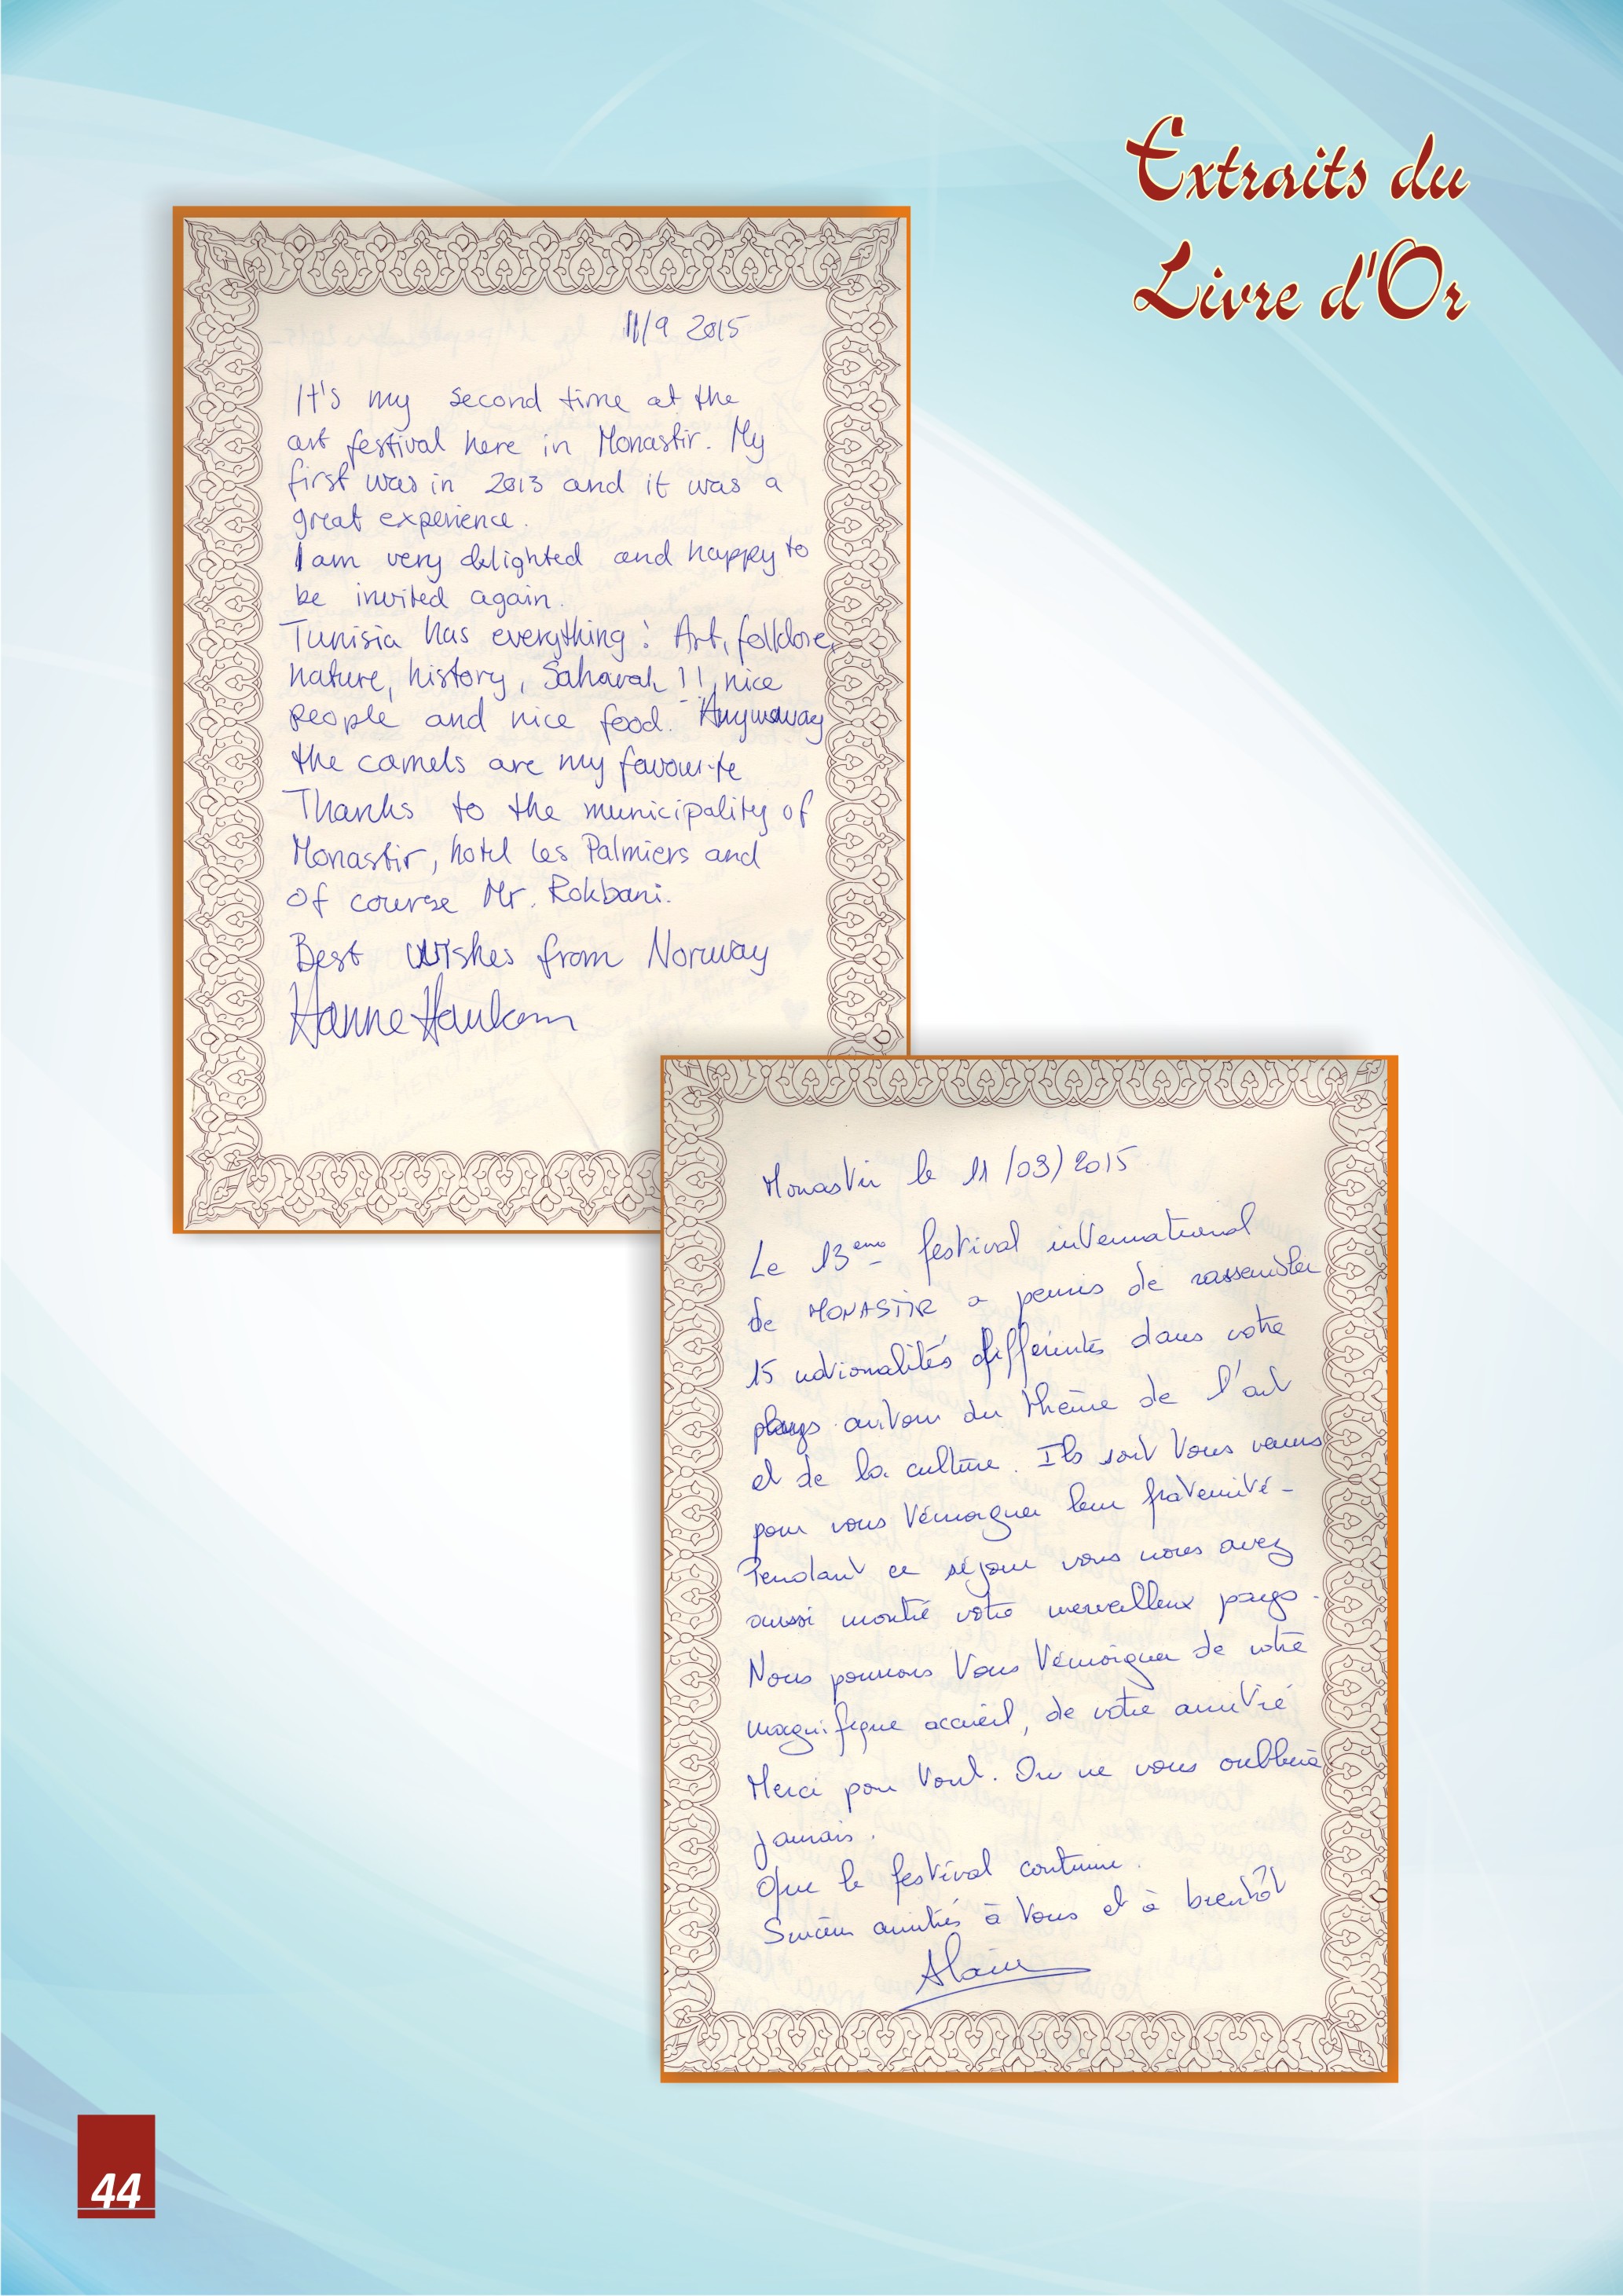 Extraits du
Livre d'Or
11/9 2015
It's my second time at the
art festival here in Monastir. My
first was in 2013 and it was a
great experience.
I am very delighted and happy to
be invited again.
Tunisia has everything: Art, folklore,
nature, history, Saharah !!, nice
people and nice food. Anymoway
the camels are my favourite
Thanks to the municipality of
Monastir, hotel les Palmiers and
of course Mr. Rokbani.
Best wishes from Norway
Hanne
Monastir le 11/03/2015
Le 13eme festival international
de MONASTIR a permis de rassembler
15 nationalités différentes dans votre
pays autour du thème de l'art
et de la culture. Ils sont tous venus
pour vous témoigner leur fraternité-
Pendant ce séjour vous nous avez
aussi montré votre merveilleux pays.
Nous pouvons tous témoigner de votre
magnifique accueil, de votre amitié
Merci pour tout. On ne vous oubliera
jamais.
Que le festival continue.
amitiés à tous et à bientôt
Alain
44